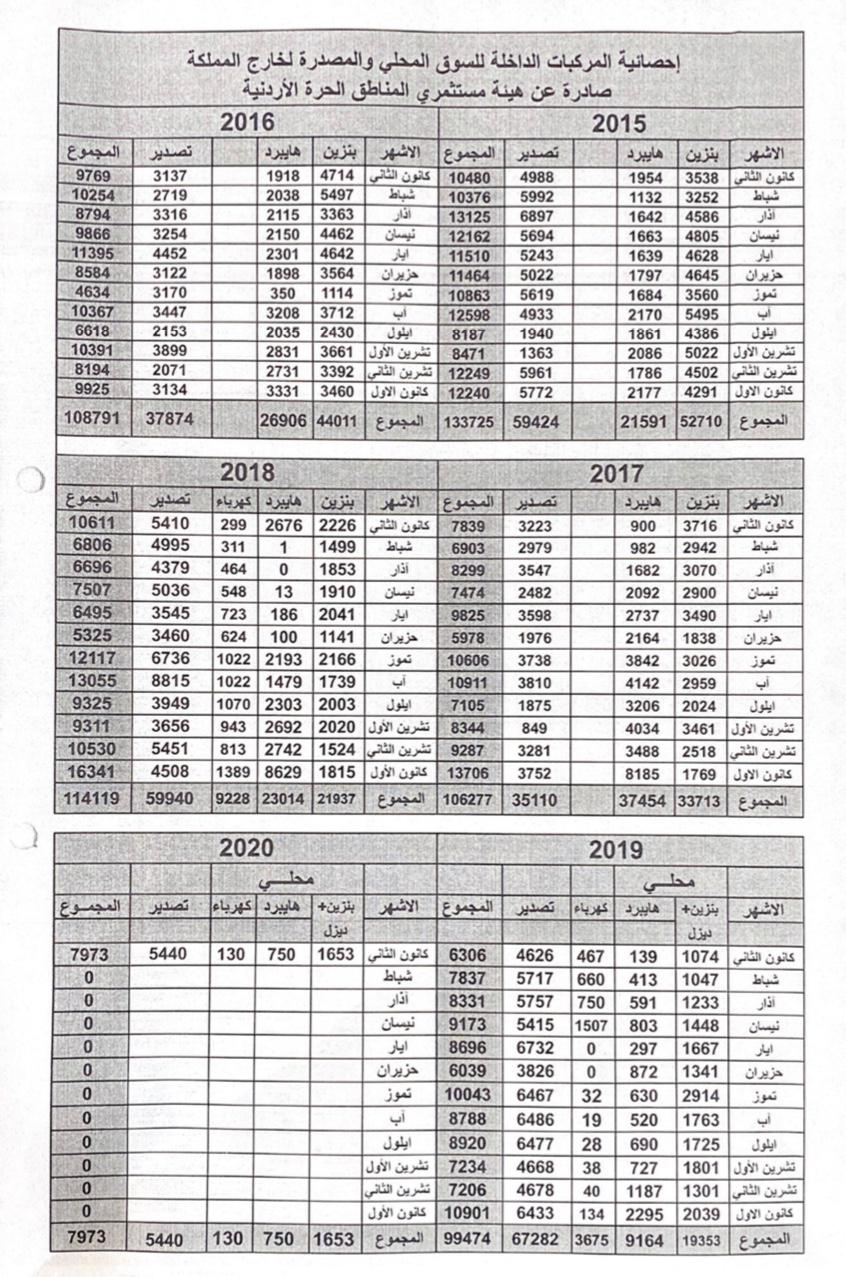 إحصائية المركبات الداخلة للسوق المحلي والمصدرة لخارج المملكة
صادرة عن هيئة مستثمري المناطق الحرة الأردنية
2015 2016
الاشهر بنزين هايبرد تصدير المجموع الاشهر بنزين هايبرد تصدير المجموع
كانون الثاني 3538 1954 4988 10480 كانون الثاني 4714 1918 3137 9769
شباط 3252 1132 5992 10376 شباط 5497 2038 2719 10254
آذار 4586 1642 6897 13125 آذار 3363 2115 3316 8794
نيسان 4805 1663 5694 12162 نيسان 4462 2150 3254 9866
ايار 4628 1639 5243 11510 ايار 4642 2301 4452 11395
حزيران 4645 1797 5022 11464 حزيران 3564 1898 3122 8584
تموز 3560 1684 5619 10863 تموز 1114 350 3170 4634
آب 5495 2170 4933 12598 آب 3712 3208 3447 10367
ايلول 4386 1861 1940 8187 ايلول 2430 2035 2153 6618
تشرين الأول 5022 2086 1363 8471 تشرين الأول 3661 2831 3899 10391
تشرين الثاني 4502 1786 5961 12249 تشرين الثاني 3392 2731 2071 8194
كانون الاول 4291 2177 5772 12240 كانون الاول 3460 3331 3134 9925
المجموع 52710 21591 59424 133725 المجموع 44011 26906 37874 108791
2017 2018
الاشهر بنزين هايبرد تصدير المجموع الاشهر بنزين هايبرد كهرباء تصدير المجموع
كانون الثاني 3716 900 3223 7839 كانون الثاني 2226 2676 299 5410 10611
شباط 2942 982 2979 6903 شباط 1499 1 311 4995 6806
آذار 3070 1682 3547 8299 آذار 1853 0 464 4379 6696
نيسان 2900 2092 2482 7474 نيسان 1910 13 548 5036 7507
ايار 3490 2737 3598 9825 ايار 2041 186 723 3545 6495
حزيران 1838 2164 1976 5978 حزيران 1141 100 624 3460 5325
تموز 3026 3842 3738 10606 تموز 2166 2193 1022 6736 12117
آب 2959 4142 3810 10911 آب 1739 1479 1022 8815 13055
ايلول 2024 3206 1875 7105 ايلول 2003 2303 1070 3949 9325
تشرين الأول 3461 4034 849 8344 تشرين الأول 2020 2692 943 3656 9311
تشرين الثاني 2518 3488 3281 9287 تشرين الثاني 1524 2742 813 5451 10530
كانون الاول 1769 8185 3752 13706 كانون الأول 1815 8629 1389 4508 16341
المجموع 33713 37454 35110 106277 المجموع 21937 23014 9228 59940 114119
2019 2020
محلــي محلــي
الاشهر بنزين+ ديزل هايبرد كهرباء تصدير المجموع الاشهر بنزين+ ديزل هايبرد كهرباء تصدير المجمــوع
كانون الثاني 1074 139 467 4626 6306 كانون الثاني 1653 750 130 5440 7973
شباط 1047 413 660 5717 7837 شباط 0
آذار 1233 591 750 5757 8331 آذار 0
نيسان 1448 803 1507 5415 9173 نيسان 0
ايار 1667 297 0 6732 8696 ايار 0
حزيران 1341 872 0 3826 6039 حزيران 0
تموز 2914 630 32 6467 10043 تموز 0
آب 1763 520 19 6486 8788 آب 0
ايلول 1725 690 28 6477 8920 ايلول 0
تشرين الأول 1801 727 38 4668 7234 تشرين الأول 0
تشرين الثاني 1301 1187 40 4678 7206 تشرين الثاني 0
كانون الاول 2039 2295 134 6433 10901 كانون الأول 0
المجموع 19353 9164 3675 67282 99474 المجموع 1653 750 130 5440 7973